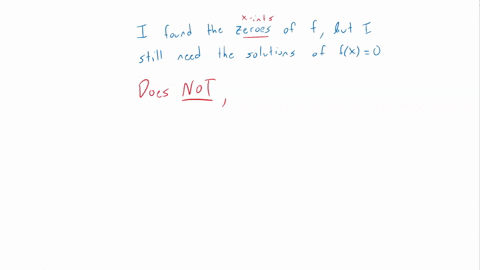 x-ints
I found the zeroes of f, but I
still need the solutions of f(x)=0
Does NOT,